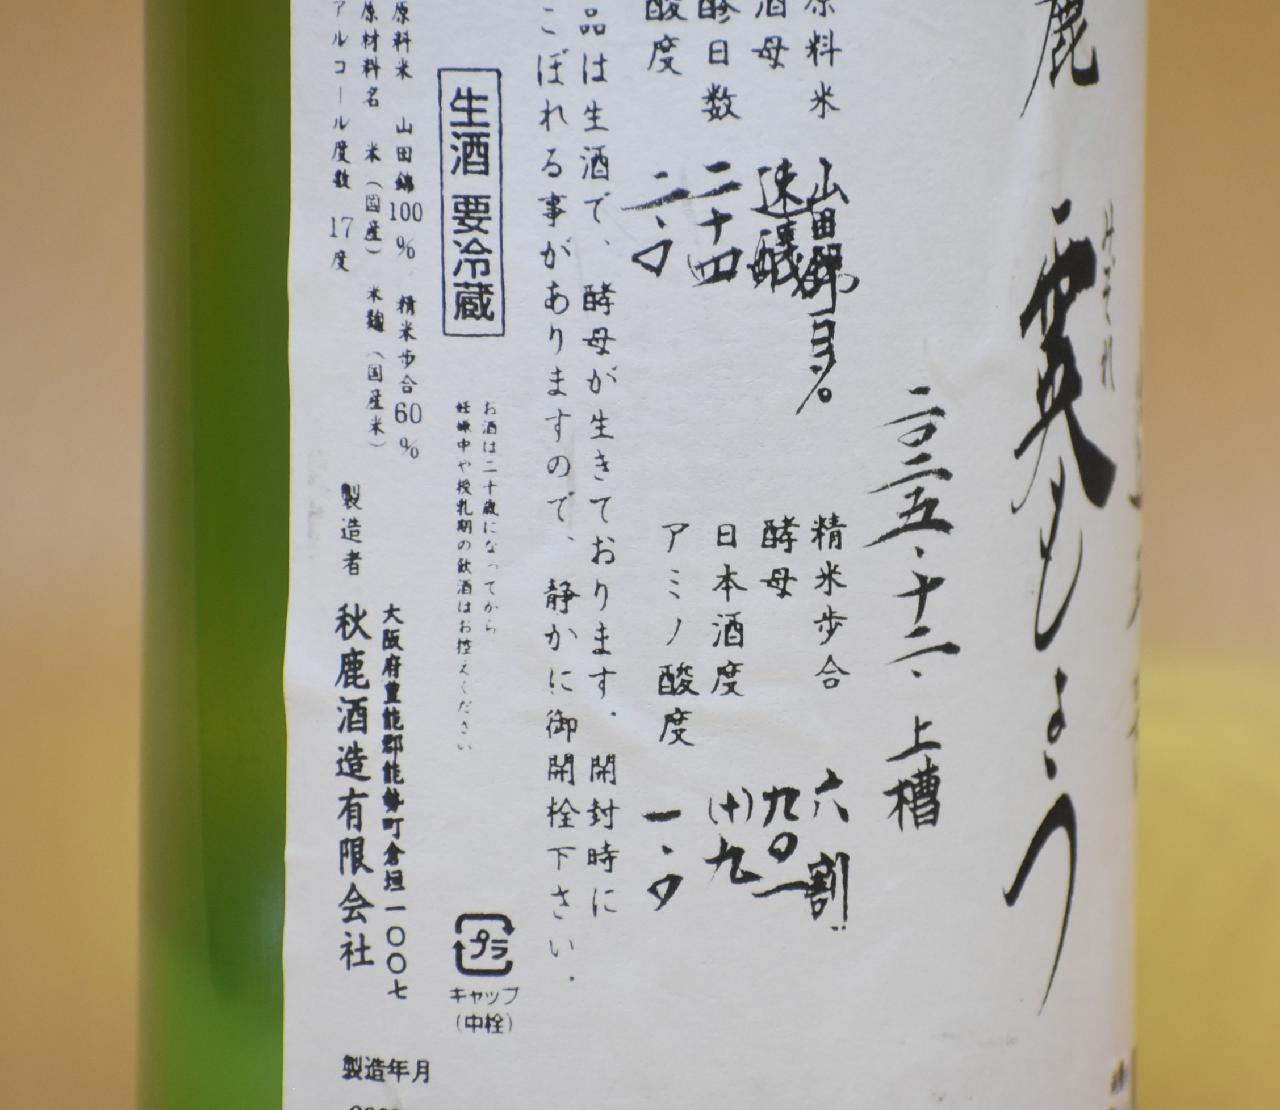 鹿 霙もよう
みぞれ
二〇二五、十二、上槽
原料米 山田錦 精米歩合 六割
酒母 速醸 酵母 九〇一
醪日数 二十四 日本酒度 (十)九
酸度 二、 アミノ酸度 一、
品は生酒で、酵母が生きております。開封時に
こぼれる事がありますので、静かに御開栓下さい.
生酒 要冷蔵
お酒は二十歳になってから
妊娠中や授乳期の飲酒はお控えください
プラ
キャップ
(中栓)
原料米 山田錦100% 精米歩合60%
原材料名 米(国産) 米麹(国産米)
アルコール度数 17度
大阪府豊能郡能勢町倉垣一〇〇七
製造者 秋鹿酒造有限会社
製造年月